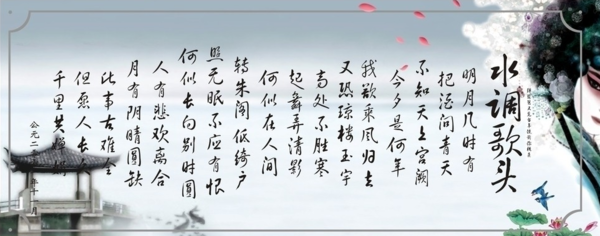 水调歌头
明月几时有
把酒问青天
不知天上宫阙
今夕是何年
我欲乘风归去
又恐琼楼玉宇
高处不胜寒
起舞弄清影
何似在人间
转朱阁低绮户
照无眠不应有恨
何似长向别时圆
人有悲欢离合
月有阴晴圆缺
此事古难全
但愿人长久
千里共
公元二 年十一月